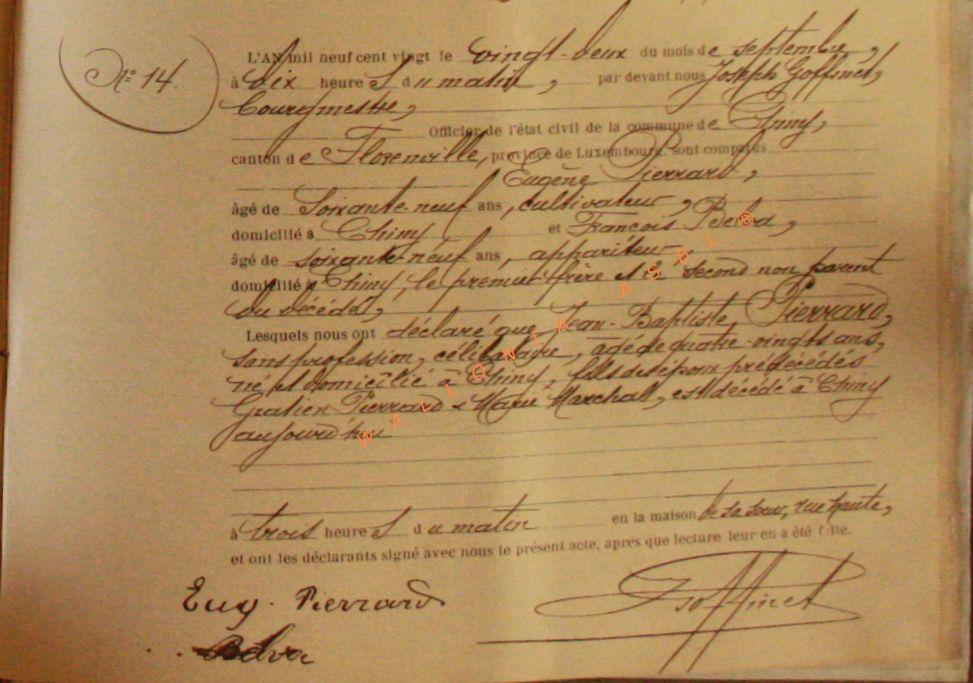 N° 14.
L'AN mil neuf cent vingt le vingt-deux du mois de septembre,
à dix heures du matin, par devant nous Joseph Goffinet,
bourgmestre,
Officier de l'état civil de la commune de Chiny,
canton de Florenville, province de Luxembourg, sont comparus
Eugène Pierrard,
âgé de soixante-neuf ans, cultivateur,
domicilié à Chiny et François Belva,
âgé de soixante-neuf ans, appariteur,
domicilié à Chiny, le premier frère et le second non parent
du décédé,
Lesquels nous ont déclaré que Jean-Baptiste Pierrard,
sans profession, célibataire, âgé de quatre-vingts ans,
né et domicilié à Chiny, fils des époux prédécédés
Gratien Pierrard & Marie Marchall, est décédé à Chiny
aujourd'hui
à trois heures du matin en la maison de sa sœur, rue haute,
et ont les déclarants signé avec nous le présent acte, après que lecture leur en a été faite.
Eug. Pierrard
Belva
JGoffinet
WALLONIA ASBL ©